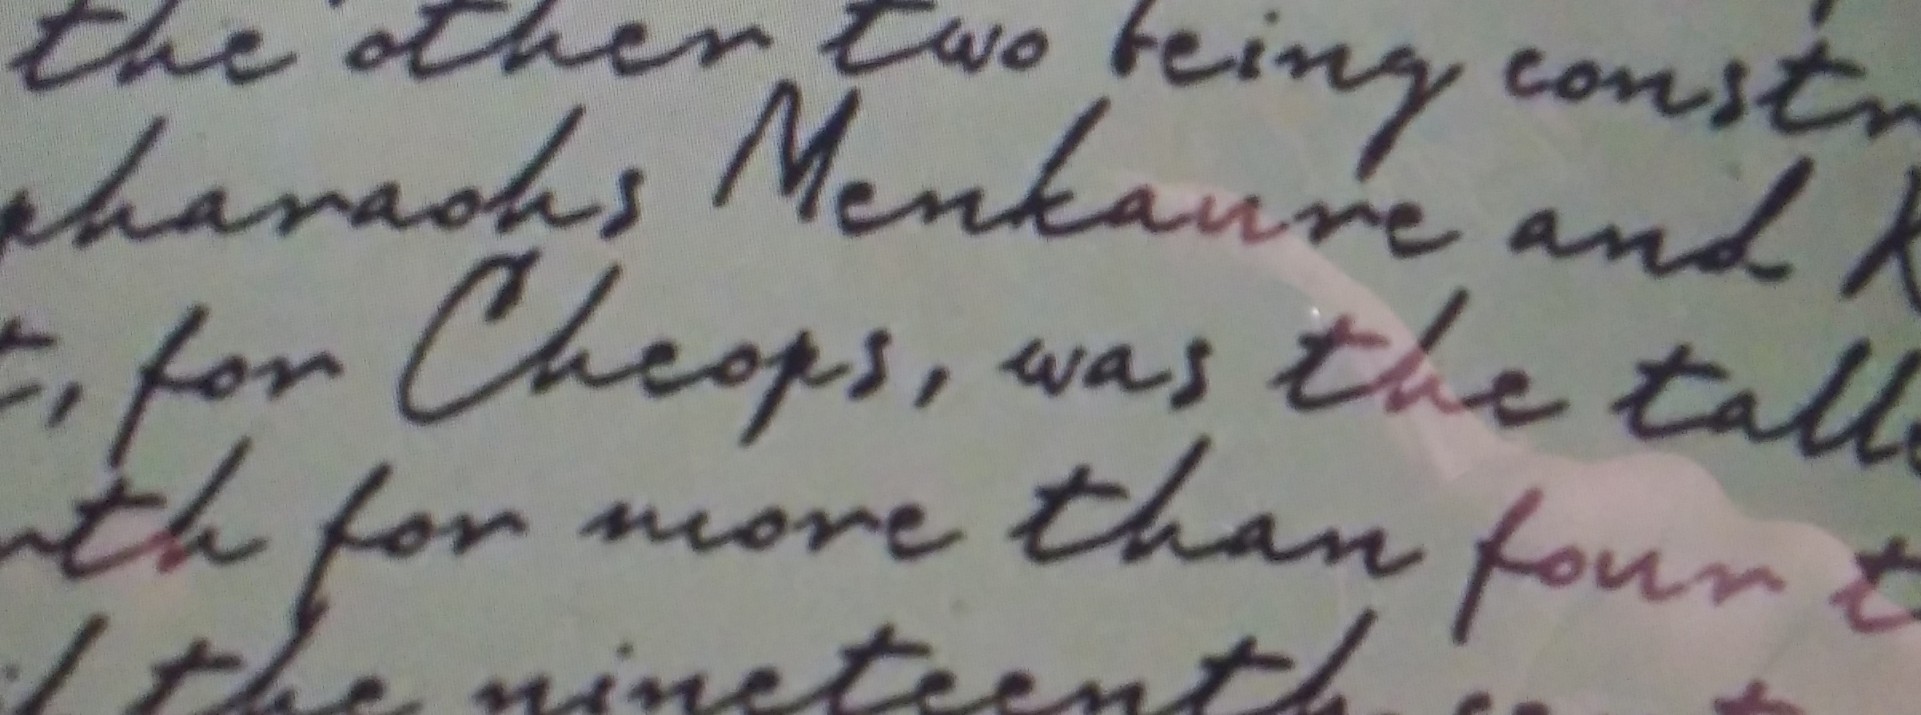 the other two being constr
pharaohs Menkaure and K
t, for Cheops, was the talle
rth for more than four t
l the nineteenth cent